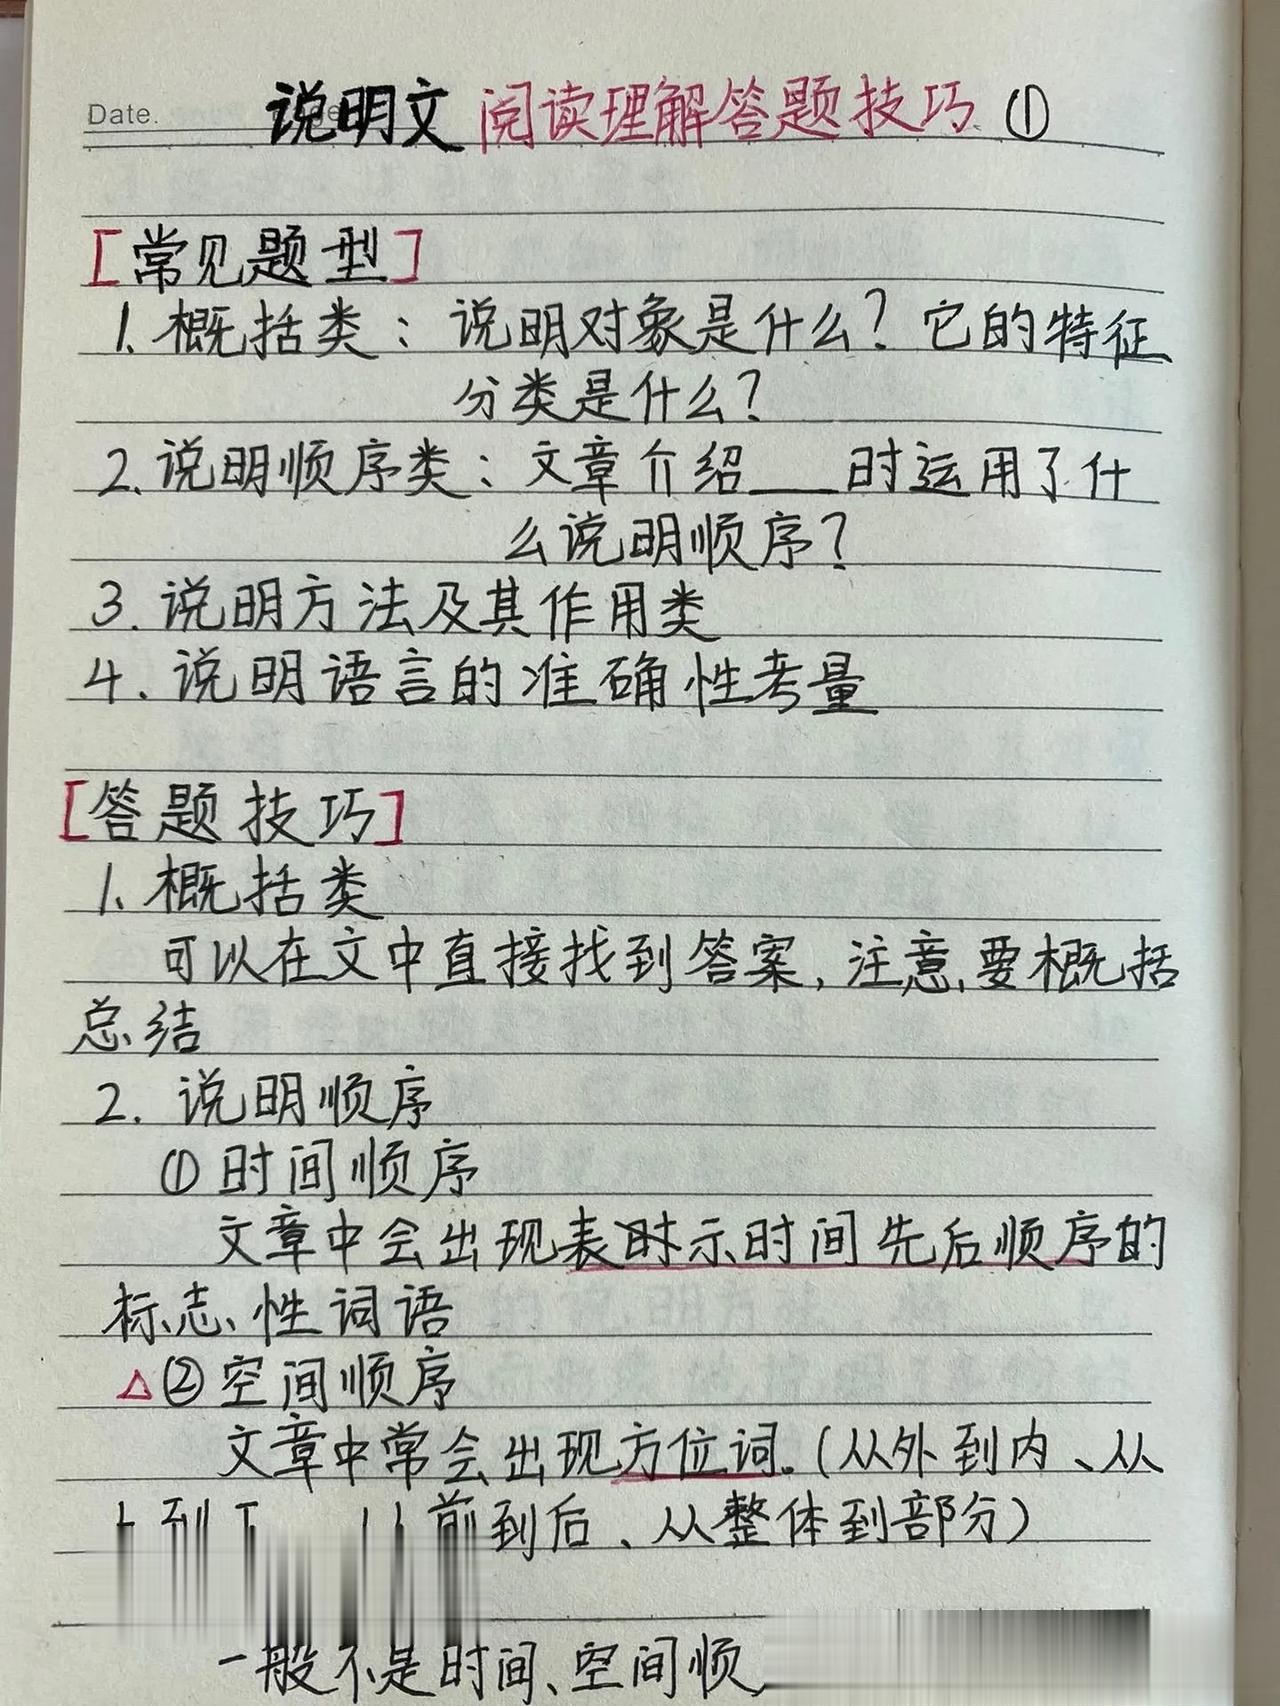 Date.
说明文 阅读理解答题技巧 ①
[常见题型]
1. 概括类：说明对象是什么？它的特征
分类是什么？
2. 说明顺序类：文章介绍___时运用了什
么说明顺序？
3. 说明方法及其作用类
4. 说明语言的准确性考量
[答题技巧]
1. 概括类
可以在文中直接找到答案，注意，要概括
总结
2. 说明顺序
①时间顺序
文章中会出现表时示时间先后顺序的
标志性词语
△②空间顺序
文章中常会出现方位词。（从外到内、从
前到后、从整体到部分）
一般不是时间、空间顺